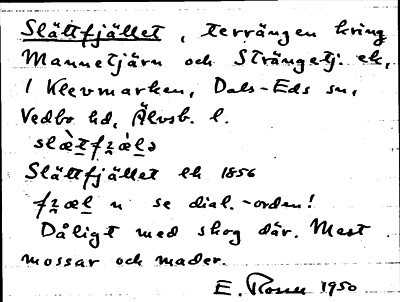 Slättfjället, terrängen kring
Mannetjärn och Strängetj. ek,
1 Klevmarken, Dals-Eds sn,
Vedbo hd, Älvsb. l.
slæ̀tfʒæ̀lə
Slättfjället lk 1856
fʒæl n se dial.-orden!
Dåligt med skog där. Mest
mossar och mader.
E. 1950